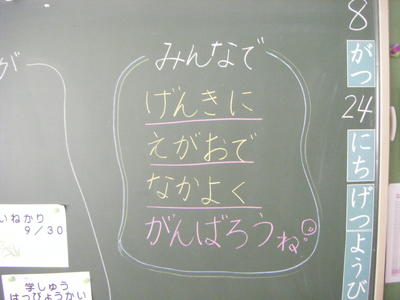 みんなで
げんきに
えがおで
なかよく
がんばろうね
8
がつ
24
にち
げつようび
が
いねかり
9/30
学しゅう
はっぴょうかい